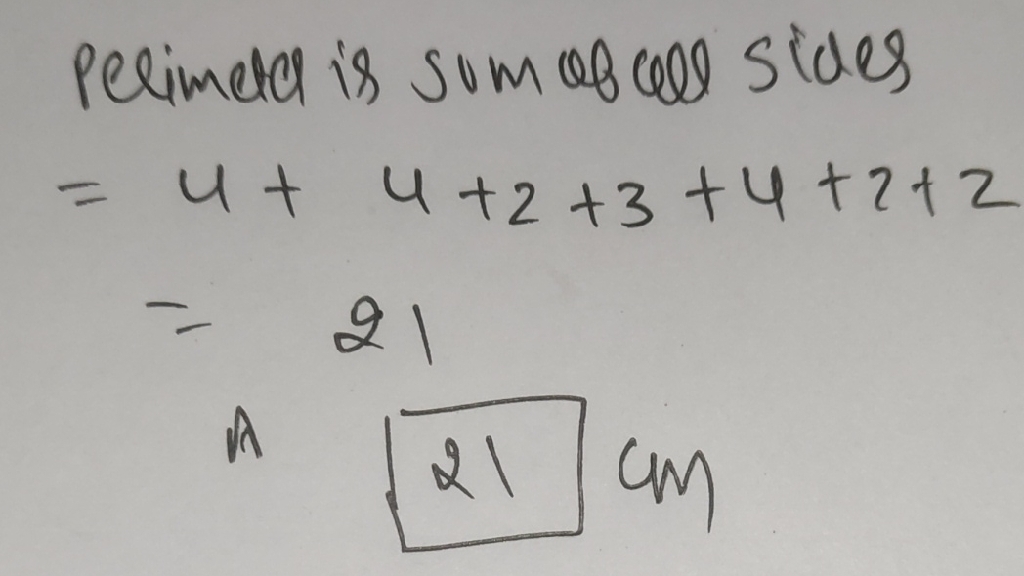 Perimeter is sum of all sides
= 4 + 4 + 2 + 3 + 4 + 2 + 2
= 21
A 21 cm